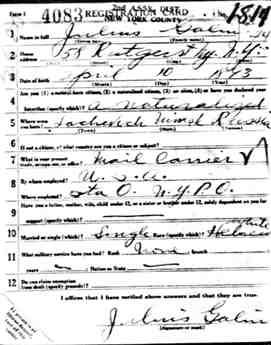 Form 1 4083 REGISTRATION CARD 1814
NEW YORK COUNTY
1 Name in full Julius Galin 24
(Given name) (Family name)
2 Home address 58 Rutgers St N.Y.
(No.) (Street) (City) (State)
3 Date of birth April 10
(Month) (Day) (Year)
4 Are you (1) a natural-born citizen, (2) a naturalized citizen, (3) an alien, (4) or have you declared your
intention (specify which)? a naturalized
5 Where were you born? Minsk Russia
(Town) (State) (Nation)
6 If not a citizen, of what country are you a citizen or subject?
7 What is your present trade, occupation, or office? Mail Carrier
8 By whom employed? U.S.
Where employed? Sta O. N.Y.P.O.
9 Have you a father, mother, wife, child under 12, or a sister or brother under 12, solely dependent on you for
support (specify which)?
10 Married or single (which)? Single Race (specify which)? White
Hebrew
11 What military service have you had? Rank None branch
years Nation or State
12 Do you claim exemption
from draft (specify grounds)?
I affirm that I have verified above answers and that they are true.
Julius Galin
(Signature or mark)